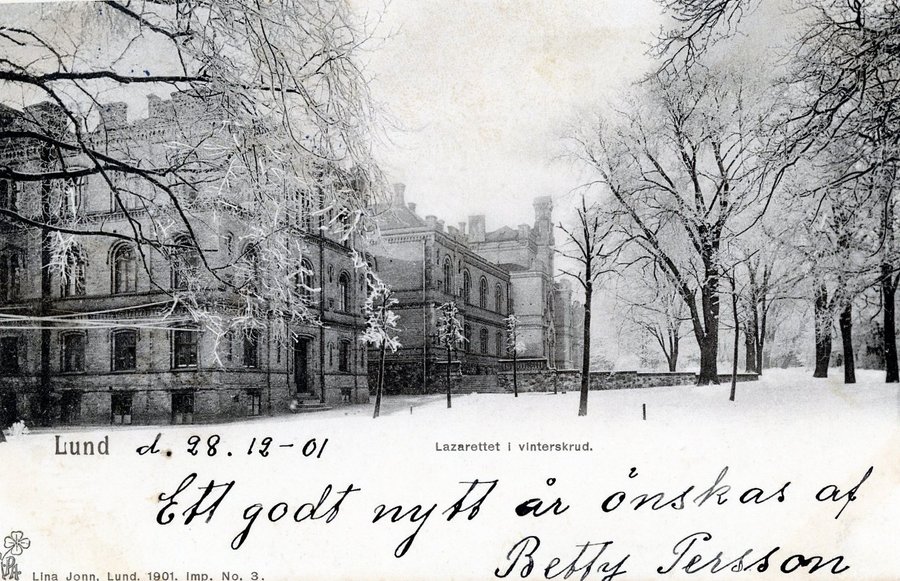 Lund d. 28. 12-01
Lazarettet i vinterskrud.
Ett godt nytt år önskas af
Betty Persson
Lina Jonn, Lund. 1901. Imp. No. 3.